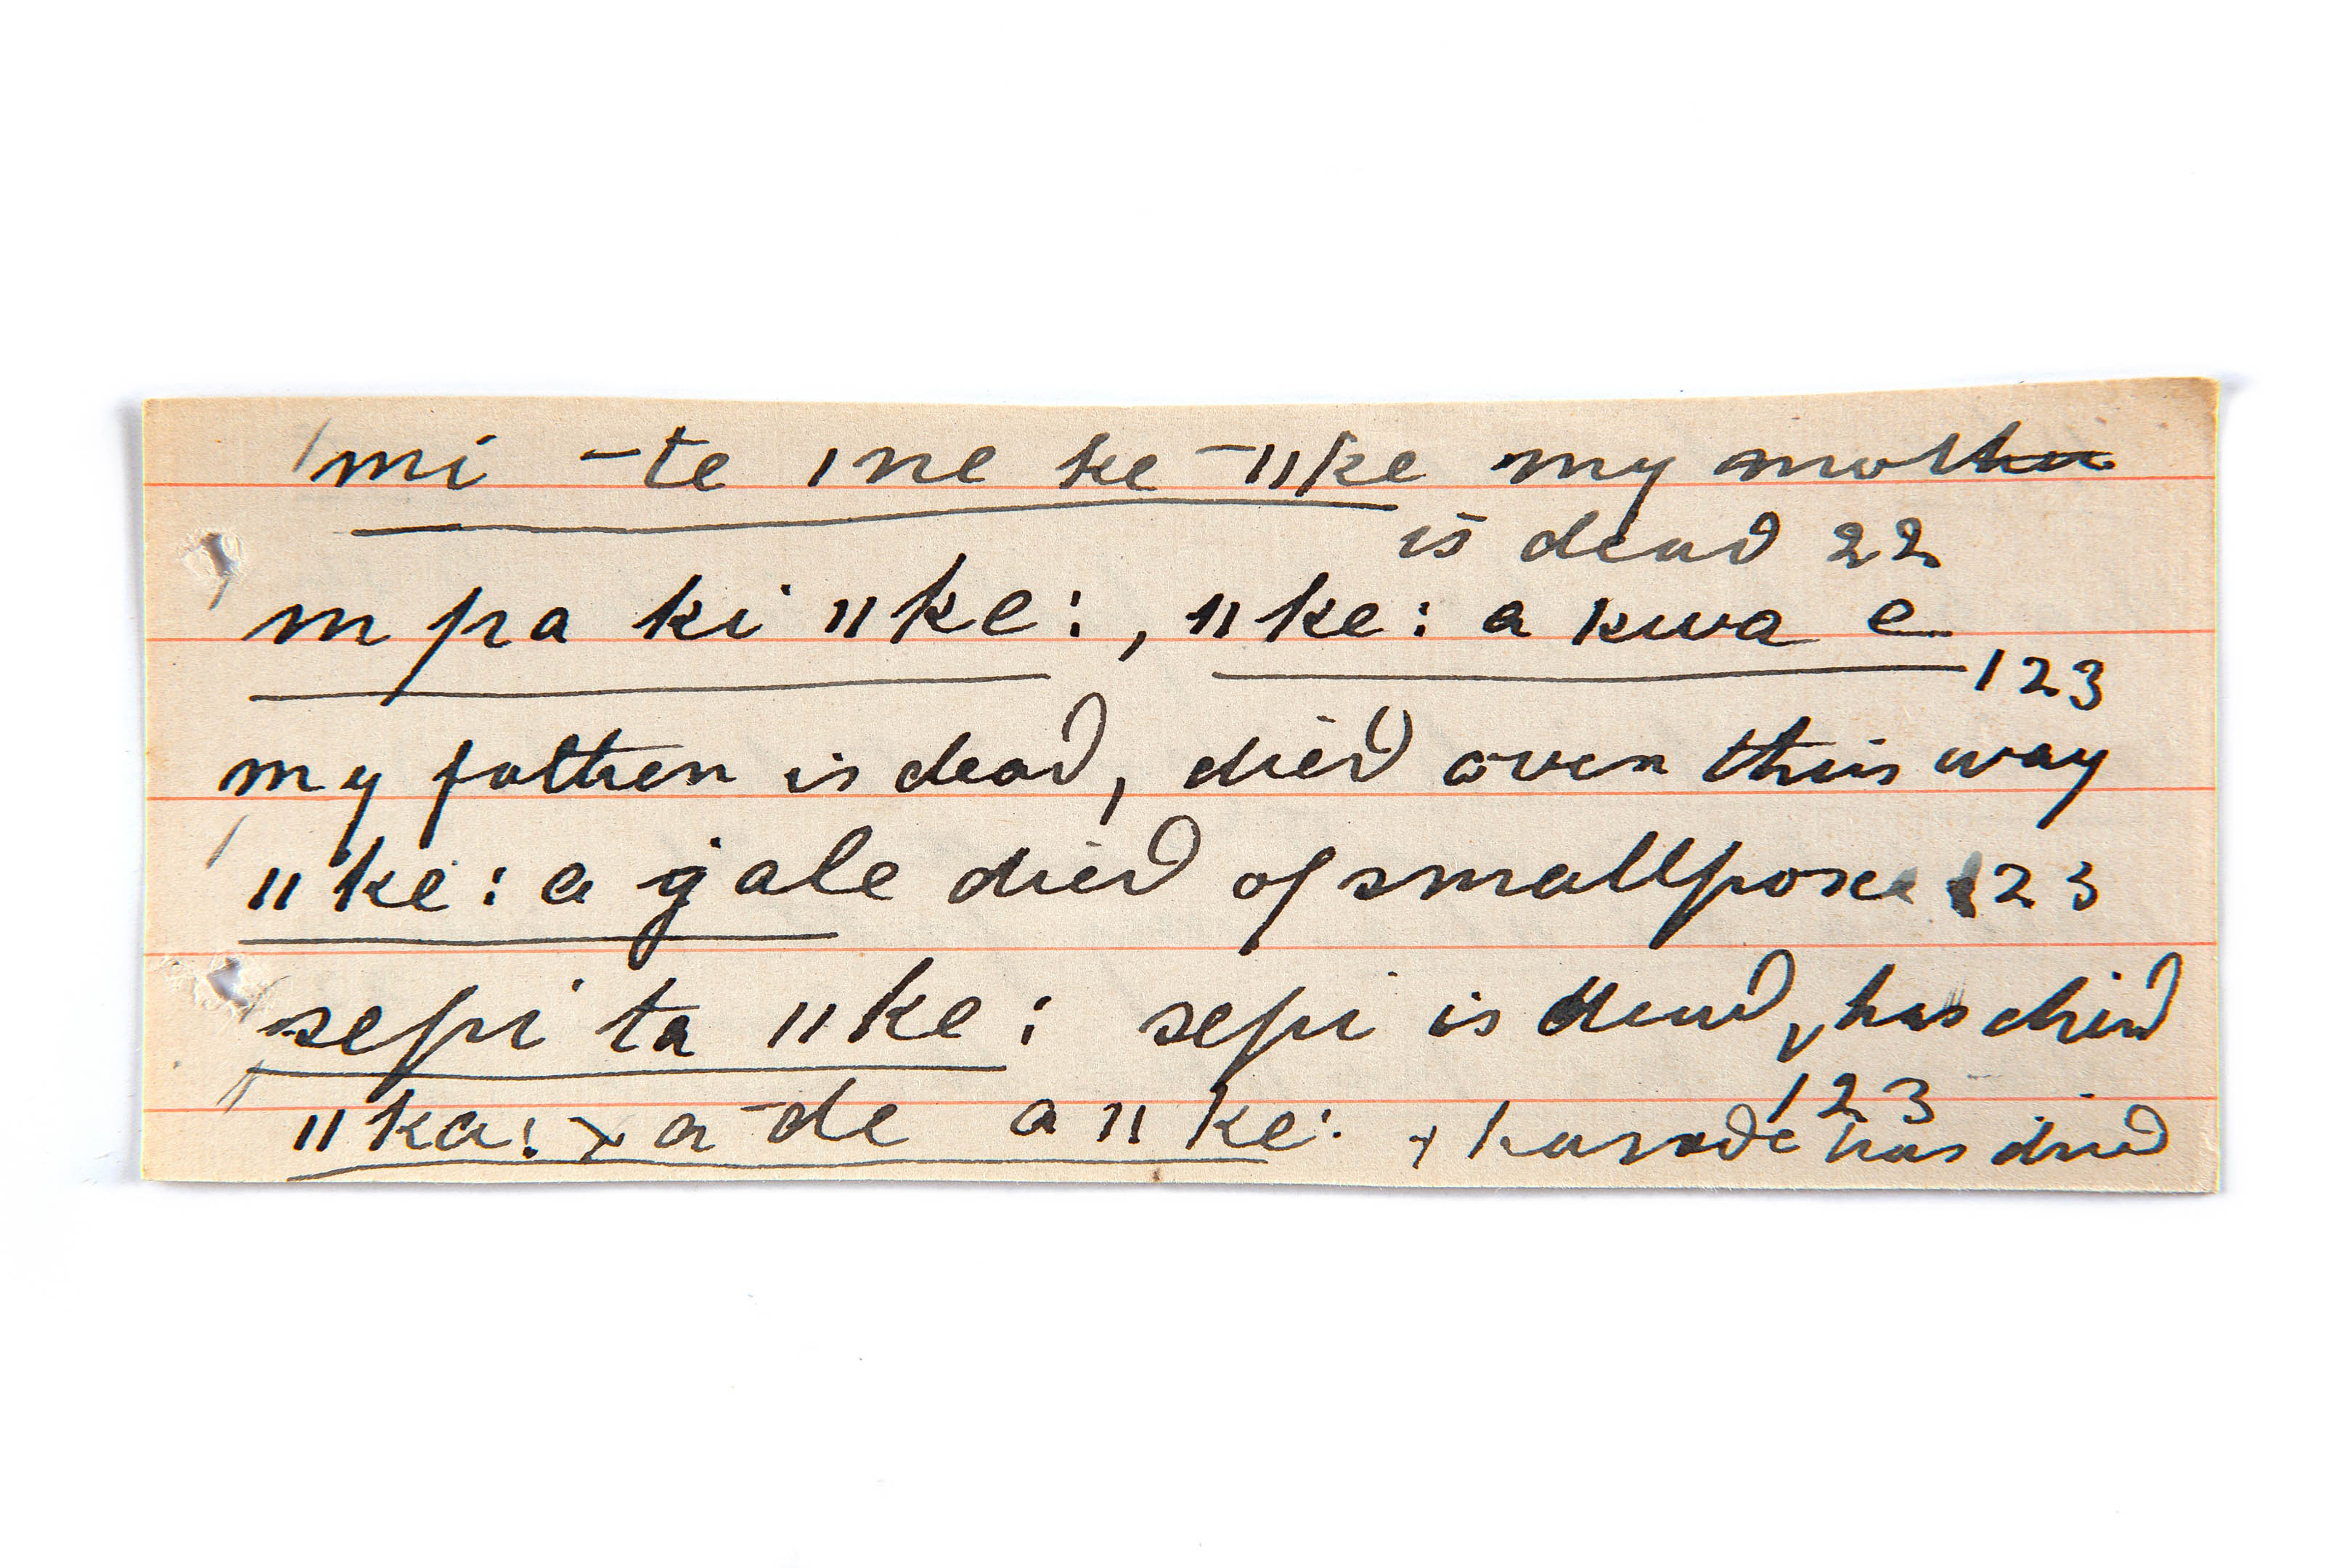 mi –te ıne ke –ıı'ke my mother
is dead 22
m pa ki ıı'ke:, ıı'ke: a kwa e
123
my father is dead, died over this way
ıı'ke: a g̈ale died of smallpox 123
sepi ta ıı'ke: sepi is dead, has died
123
ıı'ka: x a –de a ıı'ke: x has died